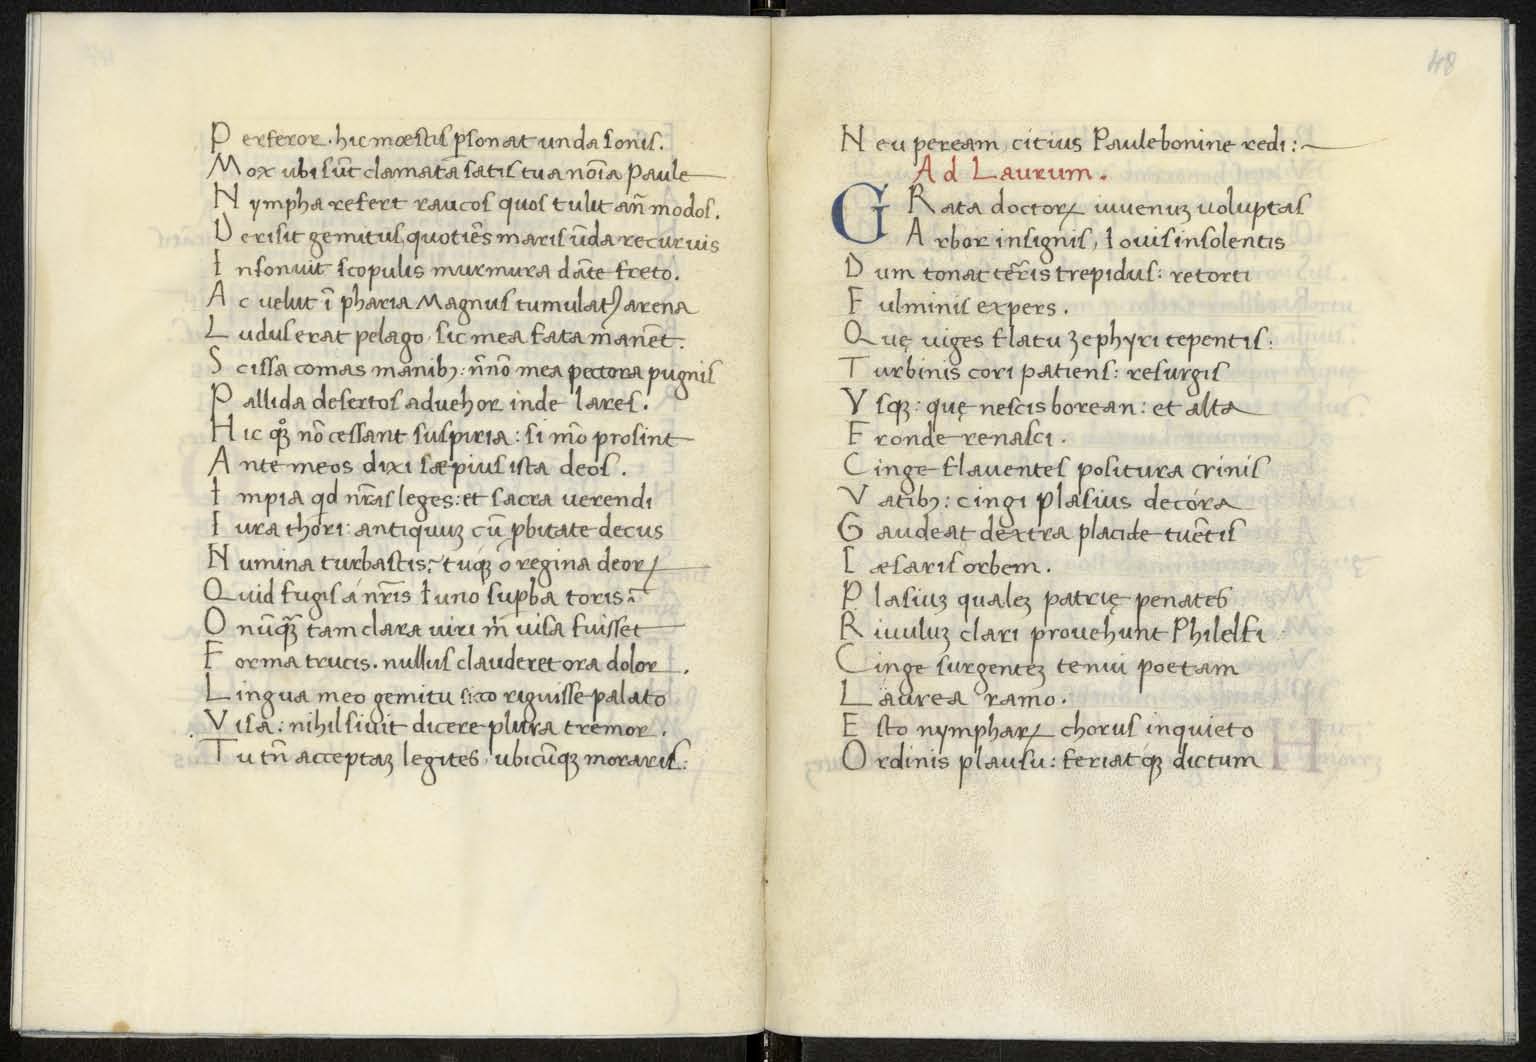 P erferor. hic mœstis ꝑsonat unda sonis.
M ox ubi sūt clamata satis tua nōia paule
N ympha refert raucos quos tulit an̄ modos.
D erisit gemitus, quotiēs maris ūda recuruis
I nsonuit scopulis murmura dāte freto.
A c uelut ī pharia Magnus tumulatꝰ arena
L udus erat pelago, sic mea fata manēt.
S cissa comas manibꝫ: n̄nō mea pectora pugnis
P allida desertos aduehor inde lares.
H ic qͦꝫ nō cessant suspiria: si mō prosint
A nte meos dixi sæpius ista deos.
I mpia qd nr̄as leges: et sacra uerendi
I ura thori: antiquuꝫ cū ꝓbitate decus
N umina turbastis: túqꝫ ó regina deoꝝ
Q uid fugis á nr̄is Iuno suꝑba toris?
O nūqꝫ̄ tam clara uiri m̄ uisa fuisset
F orma trucis. nullus clauderet ora dolor.
L ingua meo gemitu sicco riguisse palato
V isa: nihil siuit dicere plura tremor.
T u tn̄ acceptaꝫ legites, ubicūqꝫ moraris:
48
N eu peream, citius Paule bonine redi:
Ad Laurum.
G Rata doctoꝝ iuuenuꝫ uoluptas
A rbor insignis, Iouis insolentis
D um tonat terris trepidus: retorti
F ulminis expers.
Q uę uiges flatu zephyri tepentis:
T urbinis cori patiens: resurgis
V sqꝫ: quę nescis borean: et alta
F ronde renasci.
C inge flauentes positura crinis
V atibꝫ: cingi plasius decóra
G audeat dextra placide tuētis
C æsaris orbem.
P lasiuꝫ qualeꝫ patrię penates
R iuuluꝫ clari prouehunt Philelfi
C inge surgenteꝫ tenui poetam
L aurea ramo.
E sto nymphaꝝ chorus inquieto
O rdinis plausu: feriatqꝫ dictum